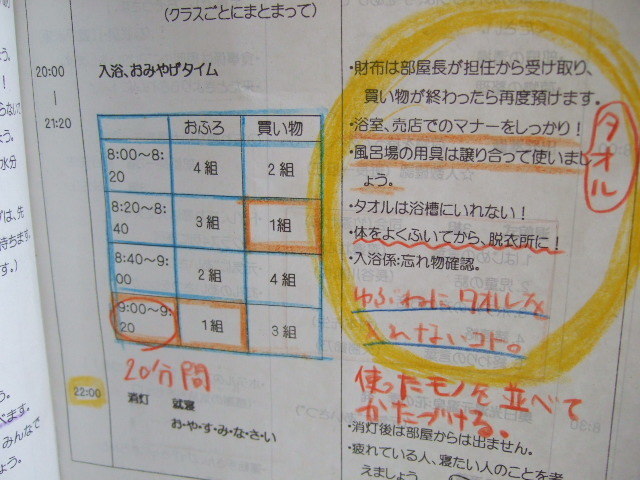 (クラスごとにまとまって)
20:00
|
21:20
入浴、おみやげタイム
おふろ 買い物
8:00～8:20 4組 2組
8:20～8:40 3組 1組
8:40～9:00 2組 4組
9:00～9:20 1組 3組
20分間
22:00
消灯 就寝
お・や・す・み・な・さ・い
・財布は部屋長が担任から受け取り、
買い物が終わったら再度預けます。
・浴室、売店でのマナーをしっかり！
・風呂場の用具は譲り合って使いまし
ょう。
タオル
・タオルは浴槽にいれない！
・体をよくふいてから、脱衣所に！
・入浴係:忘れ物確認。
ゆぶねにタオルを
入れないコト。
使ったモノを並べて
かたづける。
・消灯後は部屋からは出ません。
・疲れている人、寝たい人のことを考
えましょう